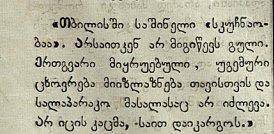 «თბილისში საშინელი «სკუჩნაო-
ბაა». არსაითკენ არ მიგიწევს გული.
ერთგვარი მიყრუებული, უგემური
ცხოვრება მიიზლაზნება თავისთვის და
სალაპარაკო მასალასაც არ იძლევა.
არ იცის კაცმა, საით დაიკარგოს.»